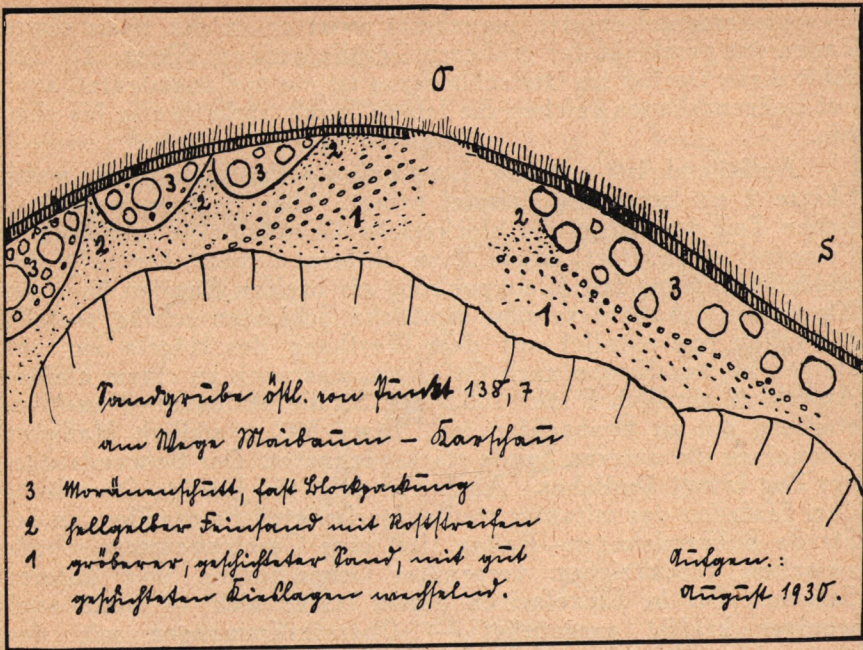 O
S
2
3
3
2
3
2
1
2
3
2
3
1
Sandgrube östl. von Punkt 138,7
am Wege Maibaum – Karschau
3 Moränenschutt, fast Blockpackung
2 hellgelber Feinsand mit Roststreifen
1 gröberer, geschichteter Sand, mit gut
geschichteten Kieslagen wechselnd.
Aufgen.:
August 1930.